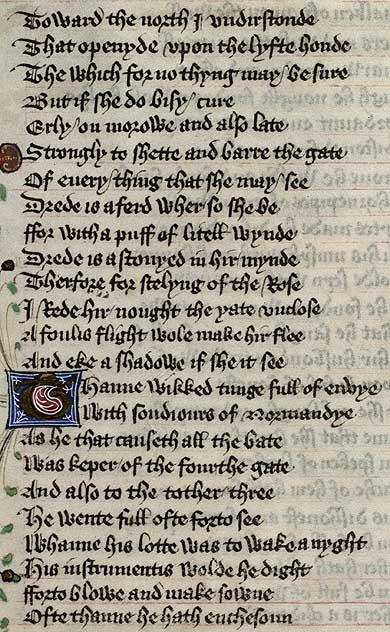 Toward the north I vndirstonde
That openyde vpon the lyfte honde
The which for no thyng may be sure
But if she do bisy cure
Erly on morowe and also late
Strongly to shette and barre the gate
Of euery thing that she may see
Drede is aferd wher so she be
ffor with a puff of litell wynde
Drede is astonyed in hir mynde
Therfore for stelyng of the Rose
I Rede hir nought the yate vnclose
A foulis flight wole make hir flee
And eke a shadowe if she it see
Thanne wikked tunge full of envye
With soudiours of Normandye
As he that causeth all the bate
Was keper of the fourthe gate
And also to the tother three
He wente full ofte forto see
Whanne his lotte was to wake anyght
His instrumentis wolde he dight
fforto blowe and make sowne
Ofte thanne he hath enchesoun